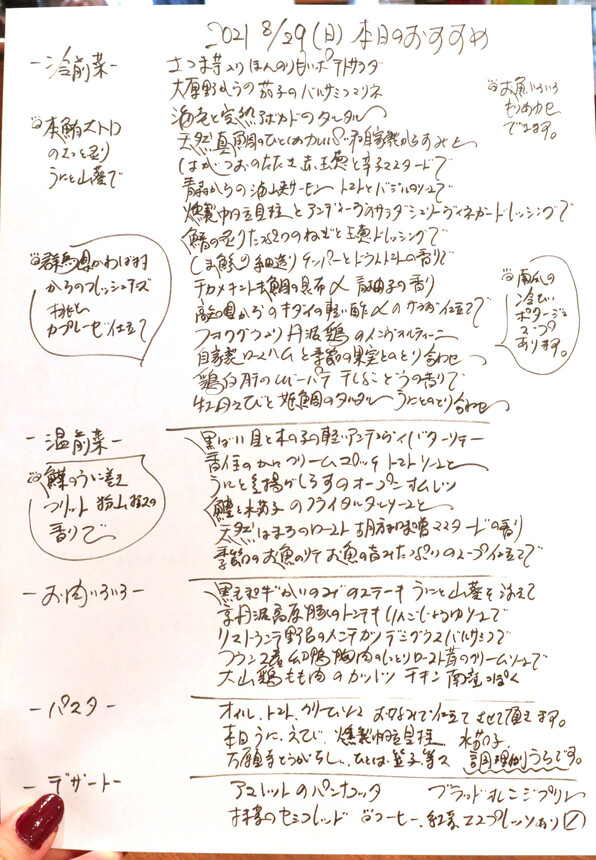 2021 8/29(日) 本日のおすすめ
- 冷前菜 -
さつま芋入り ほんのり甘いポテトサラダ
大原野からの 茄子のバルサミコマリネ
海老と完熟アボカドのタルタル
天然真鯛のひとくちカルパッチョ 自家製からすみと
はがつおのたたき 赤玉葱と辛子マスタードで
青森からの海峡サーモン トマトとバジルのソースで
燻製帆立貝柱とアンディーヴのサラダ シェリーヴィネガードレッシングで
鯖の炙り たっぷりのねぎと玉葱ドレッシングで
しま鯵の細造り ケッパーとドライトマトの香りで
チカメキントキ鯛の昆布〆 青柚子の香り
高知県からのキダイの軽い酢〆 のサラダ仕立てで
フォワグラ入り 丹波鶏のインヴォルティーニ
自家製ロースハムと季節の果実とのとり合わせ
鶏白肝のレバーパテ 干しぶどうの香りで
牡丹えびと姫鯛のタルタル うにとのとり合わせ
本鮪大トロ
のさっと炙り
うにと山葵で
群馬県かわば村
からのフレッシュチーズ
桃と
カプレーゼ仕立て
お魚いろいろ
もりあわせ
できます。
南瓜の
冷たい
ポタージュ
スープ
あります。
- 温前菜 -
黒ばい貝と木の子の軽いアンチョヴィバターソテー
香住のかにクリームコロッケ トマトソースと
うにと釜揚げしらすのオープンオムレツ
鱧と水茄子のフライ タルタルソースと
天然はまちのロースト 胡麻味噌マスタードの香り
季節のお魚のソテー お魚の旨みたっぷりのスープ仕立てで
鰈のうに巻き
フリット 粉山椒の
香りで
- お肉いろいろ -
黒毛和牛かいのみのステーキ うにと山葵を添えて
京丹波高原豚のトンテキ りんごじょうゆソースで
リストランテ野呂のメンチカツ デミグラスバルサミコで
フランス産 幼鴨胸肉のしっとりロースト 茸のクリームソースで
大山鶏もも肉のカツレツ チキン南蛮っぽく
- パスタ -
オイル、トマト、クリームソース お好みで仕立てさせて頂きます。
本日うに、えび、燻製帆立貝柱 水茄子
万願寺とうがらし、
調理おりうるです。
- デザート -
アマレットのパンナコッタ ブラッドオレンジプリン
抹茶のセミフレッド コーヒー、紅茶、エスプレッソあり